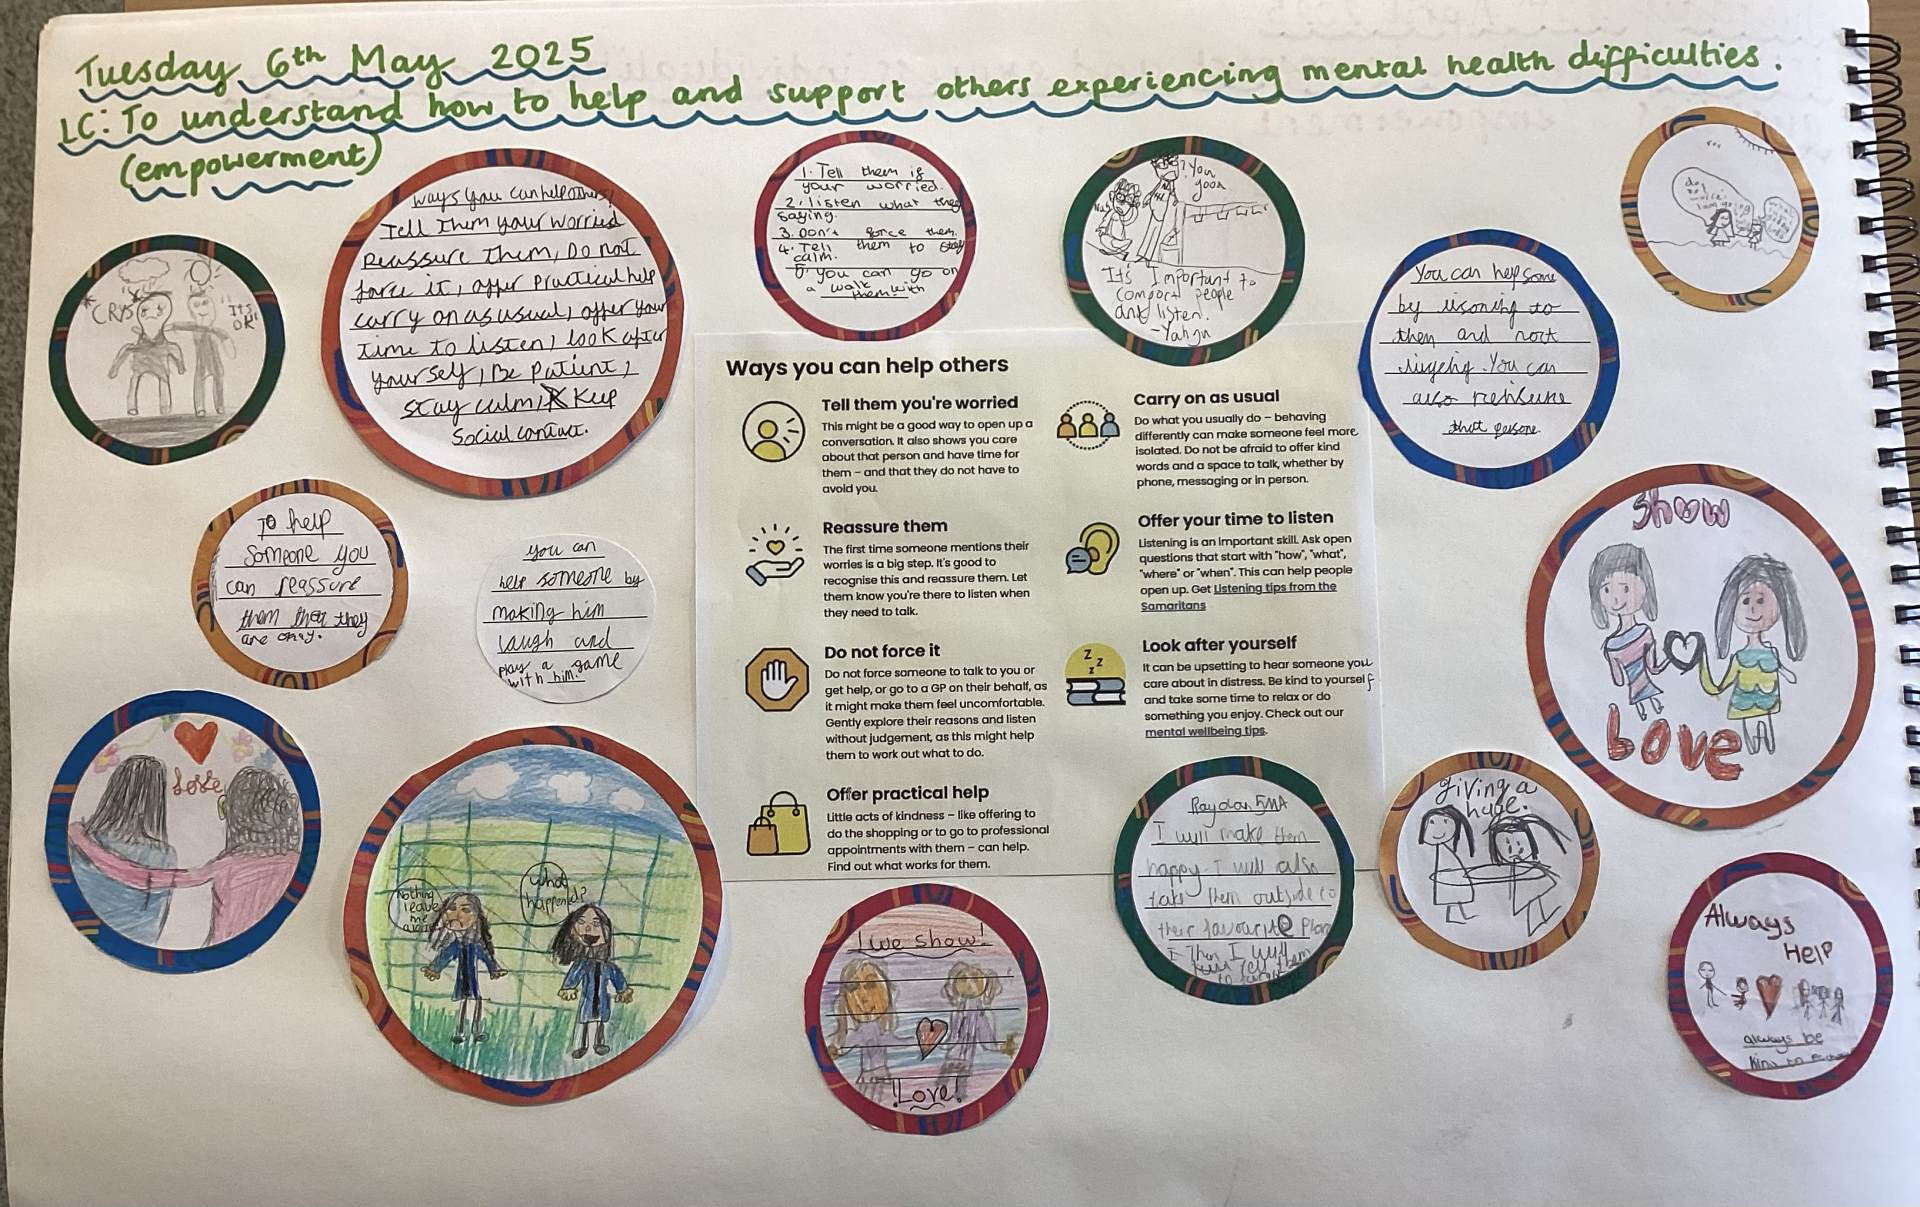 Tuesday 6th May 2025
LC: To understand how to help and support others experiencing mental health difficulties.
(empowerment)
*CRYS*
It's
OK!
Ways you can help others!
Tell them your worried
reassure them, Do not
force it, offer practical help
carry on as usual, offer your
time to listen, look after
yourself, Be patient,
stay calm, Keep
Social contact.
1. Tell them if
your worried.
2. listen what they
saying.
3. Don't force them.
4. Tell them to stay
calm.
5. you can go on
a walk
them with
? You
good
It's Important to
comport people
and listen.
do
not
I am going
You can help some
by lisoning to
then and not
You can
also
that persone.
To help
Someone you
can reassure
them they
are okay.
you can
help someone by
making him
laugh and
play a game
with him.
Ways you can help others
Tell them you're worried
This might be a good way to open up a
conversation. It also shows you care
about that person and have time for
them – and that they do not have to
avoid you.
Reassure them
The first time someone mentions their
worries is a big step. It's good to
recognise this and reassure them. Let
them know you're there to listen when
they need to talk.
Do not force it
Do not force someone to talk to you or
get help, or go to a GP on their behalf, as
it might make them feel uncomfortable.
Gently explore their reasons and listen
without judgement, as this might help
them to work out what to do.
Offer practical help
Little acts of kindness – like offering to
do the shopping or to go to professional
appointments with them – can help.
Find out what works for them.
Carry on as usual
Do what you usually do – behaving
differently can make someone feel more
isolated. Do not be afraid to offer kind
words and a space to talk, whether by
phone, messaging or in person.
Offer your time to listen
Listening is an important skill. Ask open
questions that start with "how", "what",
"where" or "when". This can help people
open up. Get Listening tips from the
Samaritans
Look after yourself
It can be upsetting to hear someone you
care about in distress. Be kind to yourself
and take some time to relax or do
something you enjoy. Check out our
mental wellbeing tips.
Show
Love
Love
Nothing
leave
me
alone
What
happened?
I we show!
!Love!
5MA
I will make them
happy. I will also
take them outside to
their favourite
Then I will
them
giving a
huge.
Always
Help
always be
kind to